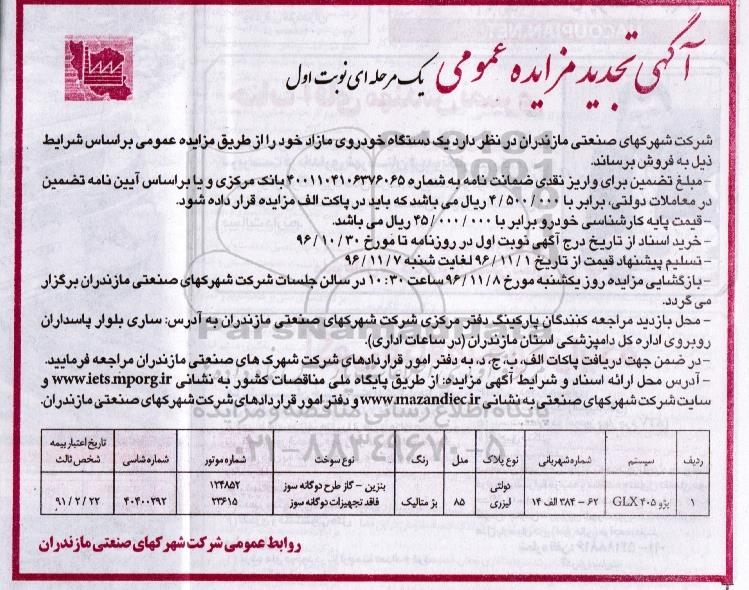 آگهی تجدید مزایده عمومی یک مرحله ای نوبت اول
شرکت شهرکهای صنعتی مازندران در نظر دارد یک دستگاه خودروی مازاد خود را از طریق مزایده عمومی بر اساس شرایط
ذیل به فروش برساند.
- مبلغ تضمین برای واریز نقدی ضمانت نامه به شماره ۴۰۰۱۱۰۴۱۰۶۳۷۶۰۶۵ بانک مرکزی و یا بر اساس آیین نامه تضمین
در معاملات دولتی، برابر با ۴/۵۰۰/۰۰۰ ریال می باشد که باید در پاکت الف مزایده قرار داده شود.
- قیمت پایه کارشناسی خودرو برابر با ۴۵/۰۰۰/۰۰۰ ریال می باشد.
- خرید اسناد از تاریخ درج آگهی نوبت اول در روزنامه تا مورخ ۹۶/۱۰/۳۰
- تسلیم پیشنهاد قیمت از تاریخ ۹۶/۱۱/۱ لغایت شنبه ۹۶/۱۱/۷
- بازگشایی مزایده روز یکشنبه مورخ ۹۶/۱۱/۸ ساعت ۱۰:۳۰ در سالن جلسات شرکت شهرکهای صنعتی مازندران برگزار
می گردد.
- محل بازدید مراجعه کنندگان پارکینگ دفتر مرکزی شرکت شهرکهای صنعتی مازندران به آدرس: ساری بلوار پاسداران
روبروی اداره کل دامپزشکی استان مازندران (در ساعات اداری).
- در ضمن جهت دریافت پاکات الف، ب، ج، د، به دفتر امور قراردادهای شرکت شهرک های صنعتی مازندران مراجعه فرمایید.
- آدرس محل ارائه اسناد و شرایط آگهی مزایده: از طریق پایگاه ملی مناقصات کشور به نشانی www.iets.mporg.ir و
سایت شرکت شهرکهای صنعتی به نشانی www.mazandiec.ir و دفتر امور قراردادهای شرکت شهرکهای صنعتی مازندران.
پایگاه اطلاع رسانی مناقصه و مزایده
۰۲۱-۸۸۳۴۹۶۷۰-۵
ردیف سیستم شماره شهربانی نوع پلاک مدل رنگ نوع سوخت شماره موتور شماره شاسی تاریخ اعتبار بیمه شخص ثالث
۱ پژو ۴۰۵ GLX ۶۲ - ۳۸۴ الف ۱۴ دولتی لیزری ۸۵ بژ متالیک بنزین - گاز طرح دوگانه سوز فاقد تجهیزات دوگانه سوز ۱۲۴۸۵۲ ۳۳۶۱۵ ۴۰۴۰۰۲۹۲ ۹۱/۲/۲۲
روابط عمومی شرکت شهرکهای صنعتی مازندران